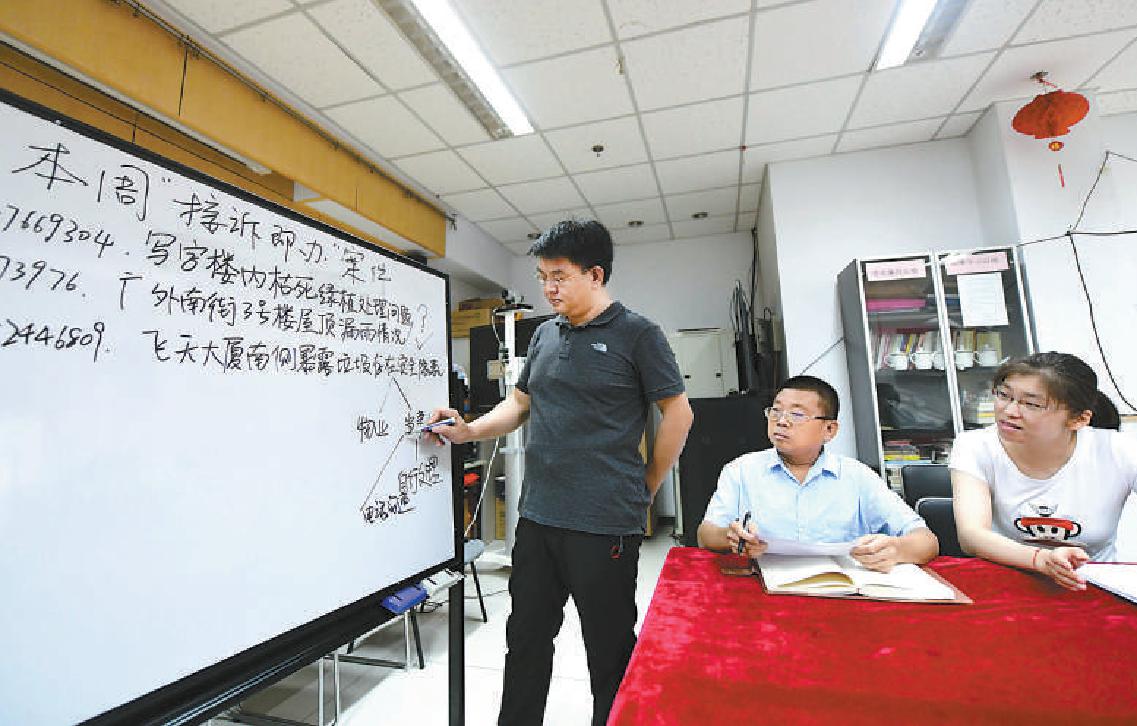 本周"接诉即办"案件
7669304. 写字楼内枯死绿植处理问题
73976. 广外南街3号楼屋顶漏雨情况?
2446809. 飞天大厦南侧暴露垃圾存在安全隐患
物业
自行处理
电话沟通
THE NORTH FACE